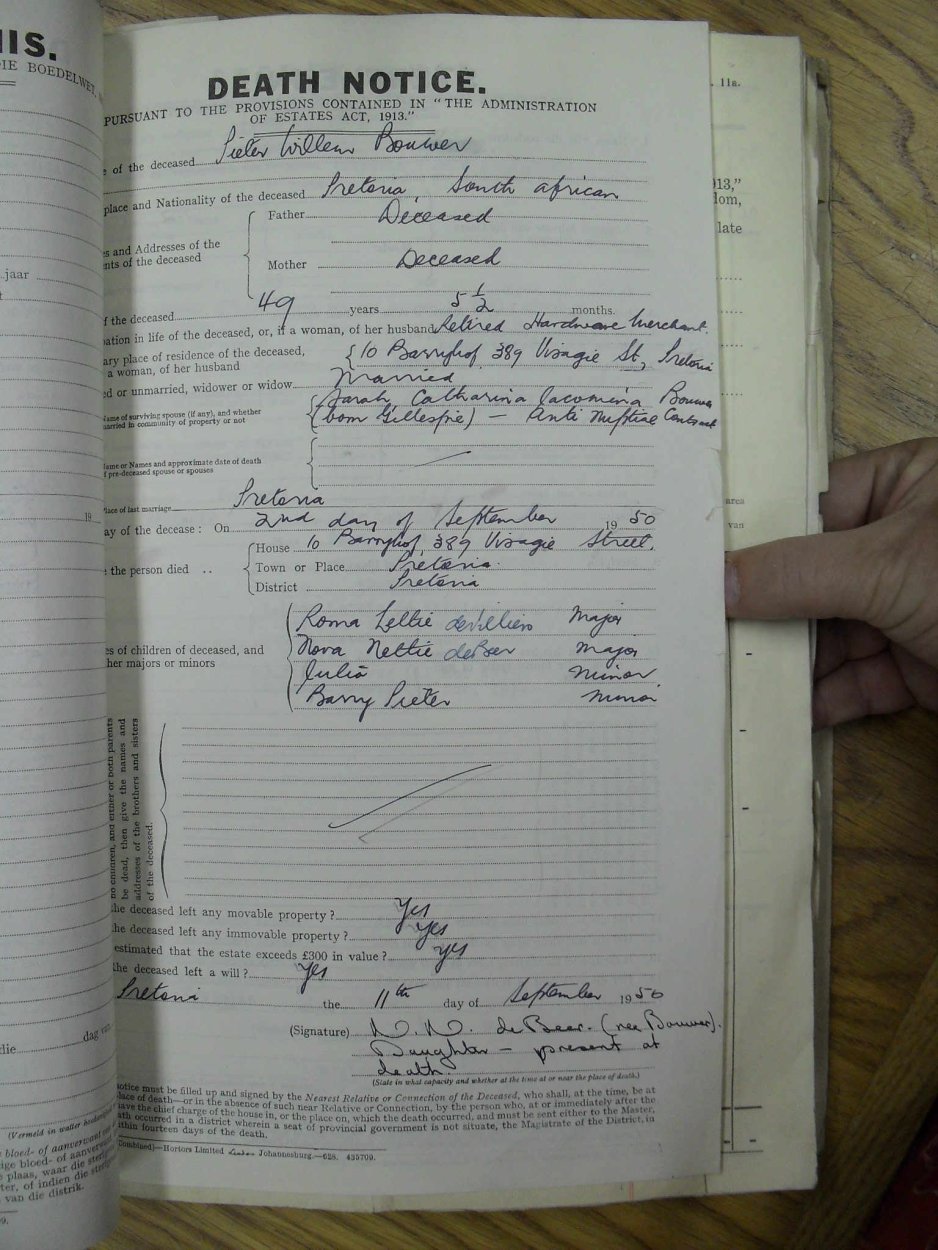 IIS.
IE BOEDELWET,
DEATH NOTICE.
PURSUANT TO THE PROVISIONS CONTAINED IN "THE ADMINISTRATION
OF ESTATES ACT, 1913."
of the deceased Pieter Willem Bouwer
place and Nationality of the deceased Pretoria, South African
Father Deceased
es and Addresses of the
nts of the deceased
Mother Deceased
f the deceased 49 years 5 1/2 months.
pation in life of the deceased, or, if a woman, of her husband Retired Hardware Merchant.
ary place of residence of the deceased,
a woman, of her husband
10 Barryhof 389 Visagie St, Pretoria
ed or unmarried, widower or widow Married
Name of surviving spouse (if any), and whether
married in community of property or not
Sarah Catharina Jacomina Bouwer
(born Gillespie) - Anti Nuptial Contract
Name or Names and approximate date of death
f pre-deceased spouse or spouses
Place of last marriage Pretoria
ay of the decease: On 2nd day of September 1950
House 10 Barryhof, 389 Visagie Street.
e the person died .. Town or Place Pretoria.
District Pretoria
Roma Lettie deVilliers Major
Nova Nettie deBeer Major
es of children of deceased, and
her majors or minors
Julia Minor
Barry Pieter Minor
no children, and either or both parents
be dead, then give the names and
addresses of the brothers and sisters
of the deceased.
the deceased left any movable property? Yes
the deceased left any immovable property? Yes
estimated that the estate exceeds £300 in value? Yes
the deceased left a will? Yes
Pretoria the 11th day of September 1950
(Signature) N. N. de Beer. (nee Bouwer).
Daughter - present at
death.
(State in what capacity and whether at the time at or near the place of death.)
notice must be filled up and signed by the Nearest Relative or Connection of the Deceased, who shall, at the time, be at
place of death—or in the absence of such near Relative or Connection, by the person who, at or immediately after the
have the chief charge of the house in, or the place on, which the death occurred, and must be sent either to the Master,
th occurred in a district wherein a seat of provincial government is not situate, the Magistrate of the District, in
ithin fourteen days of the death.
Combined)—Hortors Limited Johannesburg.—628. 435709.
jaar
19
dag van
die
(Vermeld in watter hoedanigheid
bloed- of aanverwant
ige bloed- of aanverwant
plaas, waar die
ter, of indien die
van die distrik.
9.
11a.
913,"
dom,
late
area
van